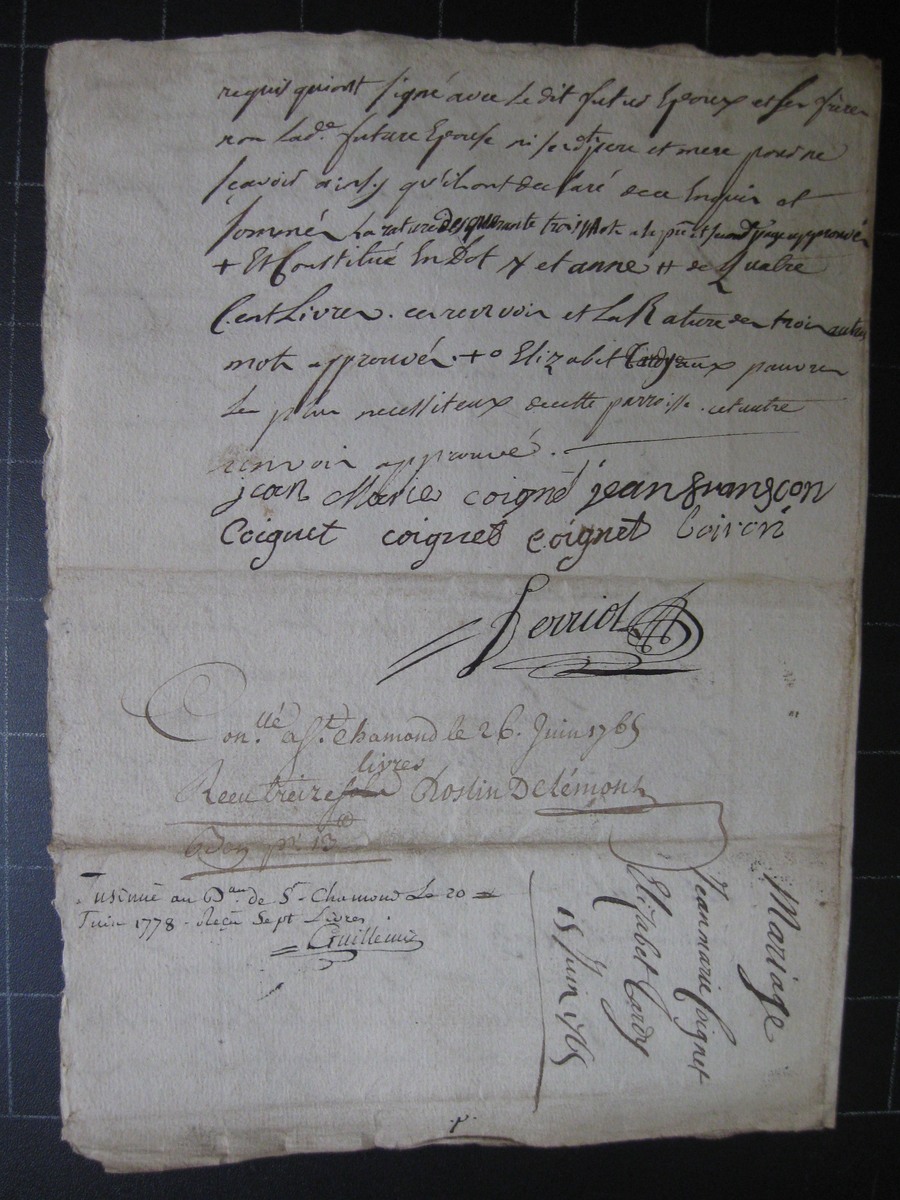 requis qui ont signé avec le dit futur Epoux et ses freres
non lad.e future Epouse ni sesd.ts pere et mere pour ne
sçavoir ainsy qu'ils ont declaré de ce Enquis et
sommés La rature des quarante trois mots approuvés
+ Et Constitué En Dot X et anné # de Quatre
Cent Livres . ce renvoir et La Rature des trois autres
mots approuvés . +o Elizabit Cardy aux pauvres
Le plus necessiteux de cette parroisse . cet autre
renvoir approuvé .
jean Marie coigné jean françon
Coignet coignet coignet Coiron
Perriol
Con.llé a S.t Chamond le 26. Juin 1765
livres
Receu treize sols Roslin Delémont
13
Insinué au B.au de S.t Chamond Le 20
Juin 1778 - Reçu Sept Livres
Guillemin
Mariage
Jeanmarie Coignet
Elizabet Cardy
15 Juin 1765